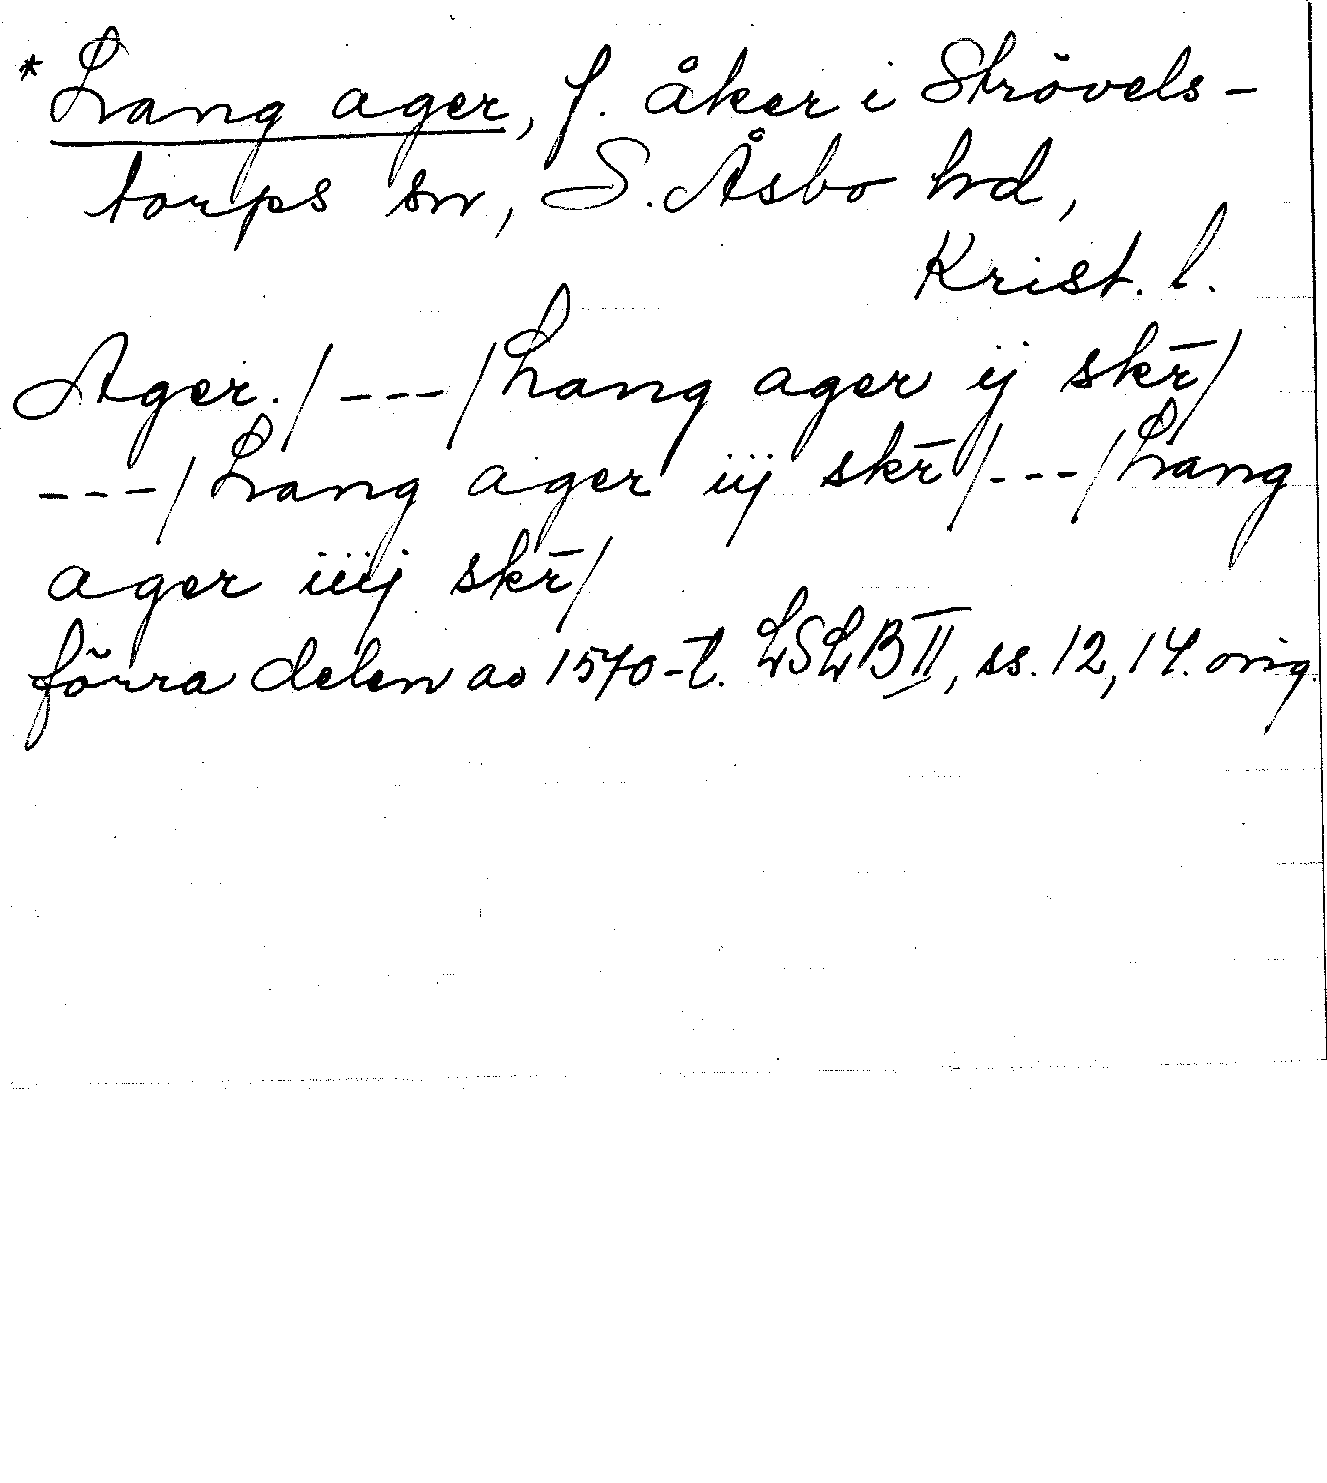 * Lang ager, f. åker i Strövels-
torps sn, S. Åsbo hd,
Krist. l.
Ager./---/Lang ager ij skr̄/
---/Lang ager iij skr̄/---/Lang
ager iiij skr̄/
förra delen av 1570-t. LSLB II, ss. 12, 14. orig.